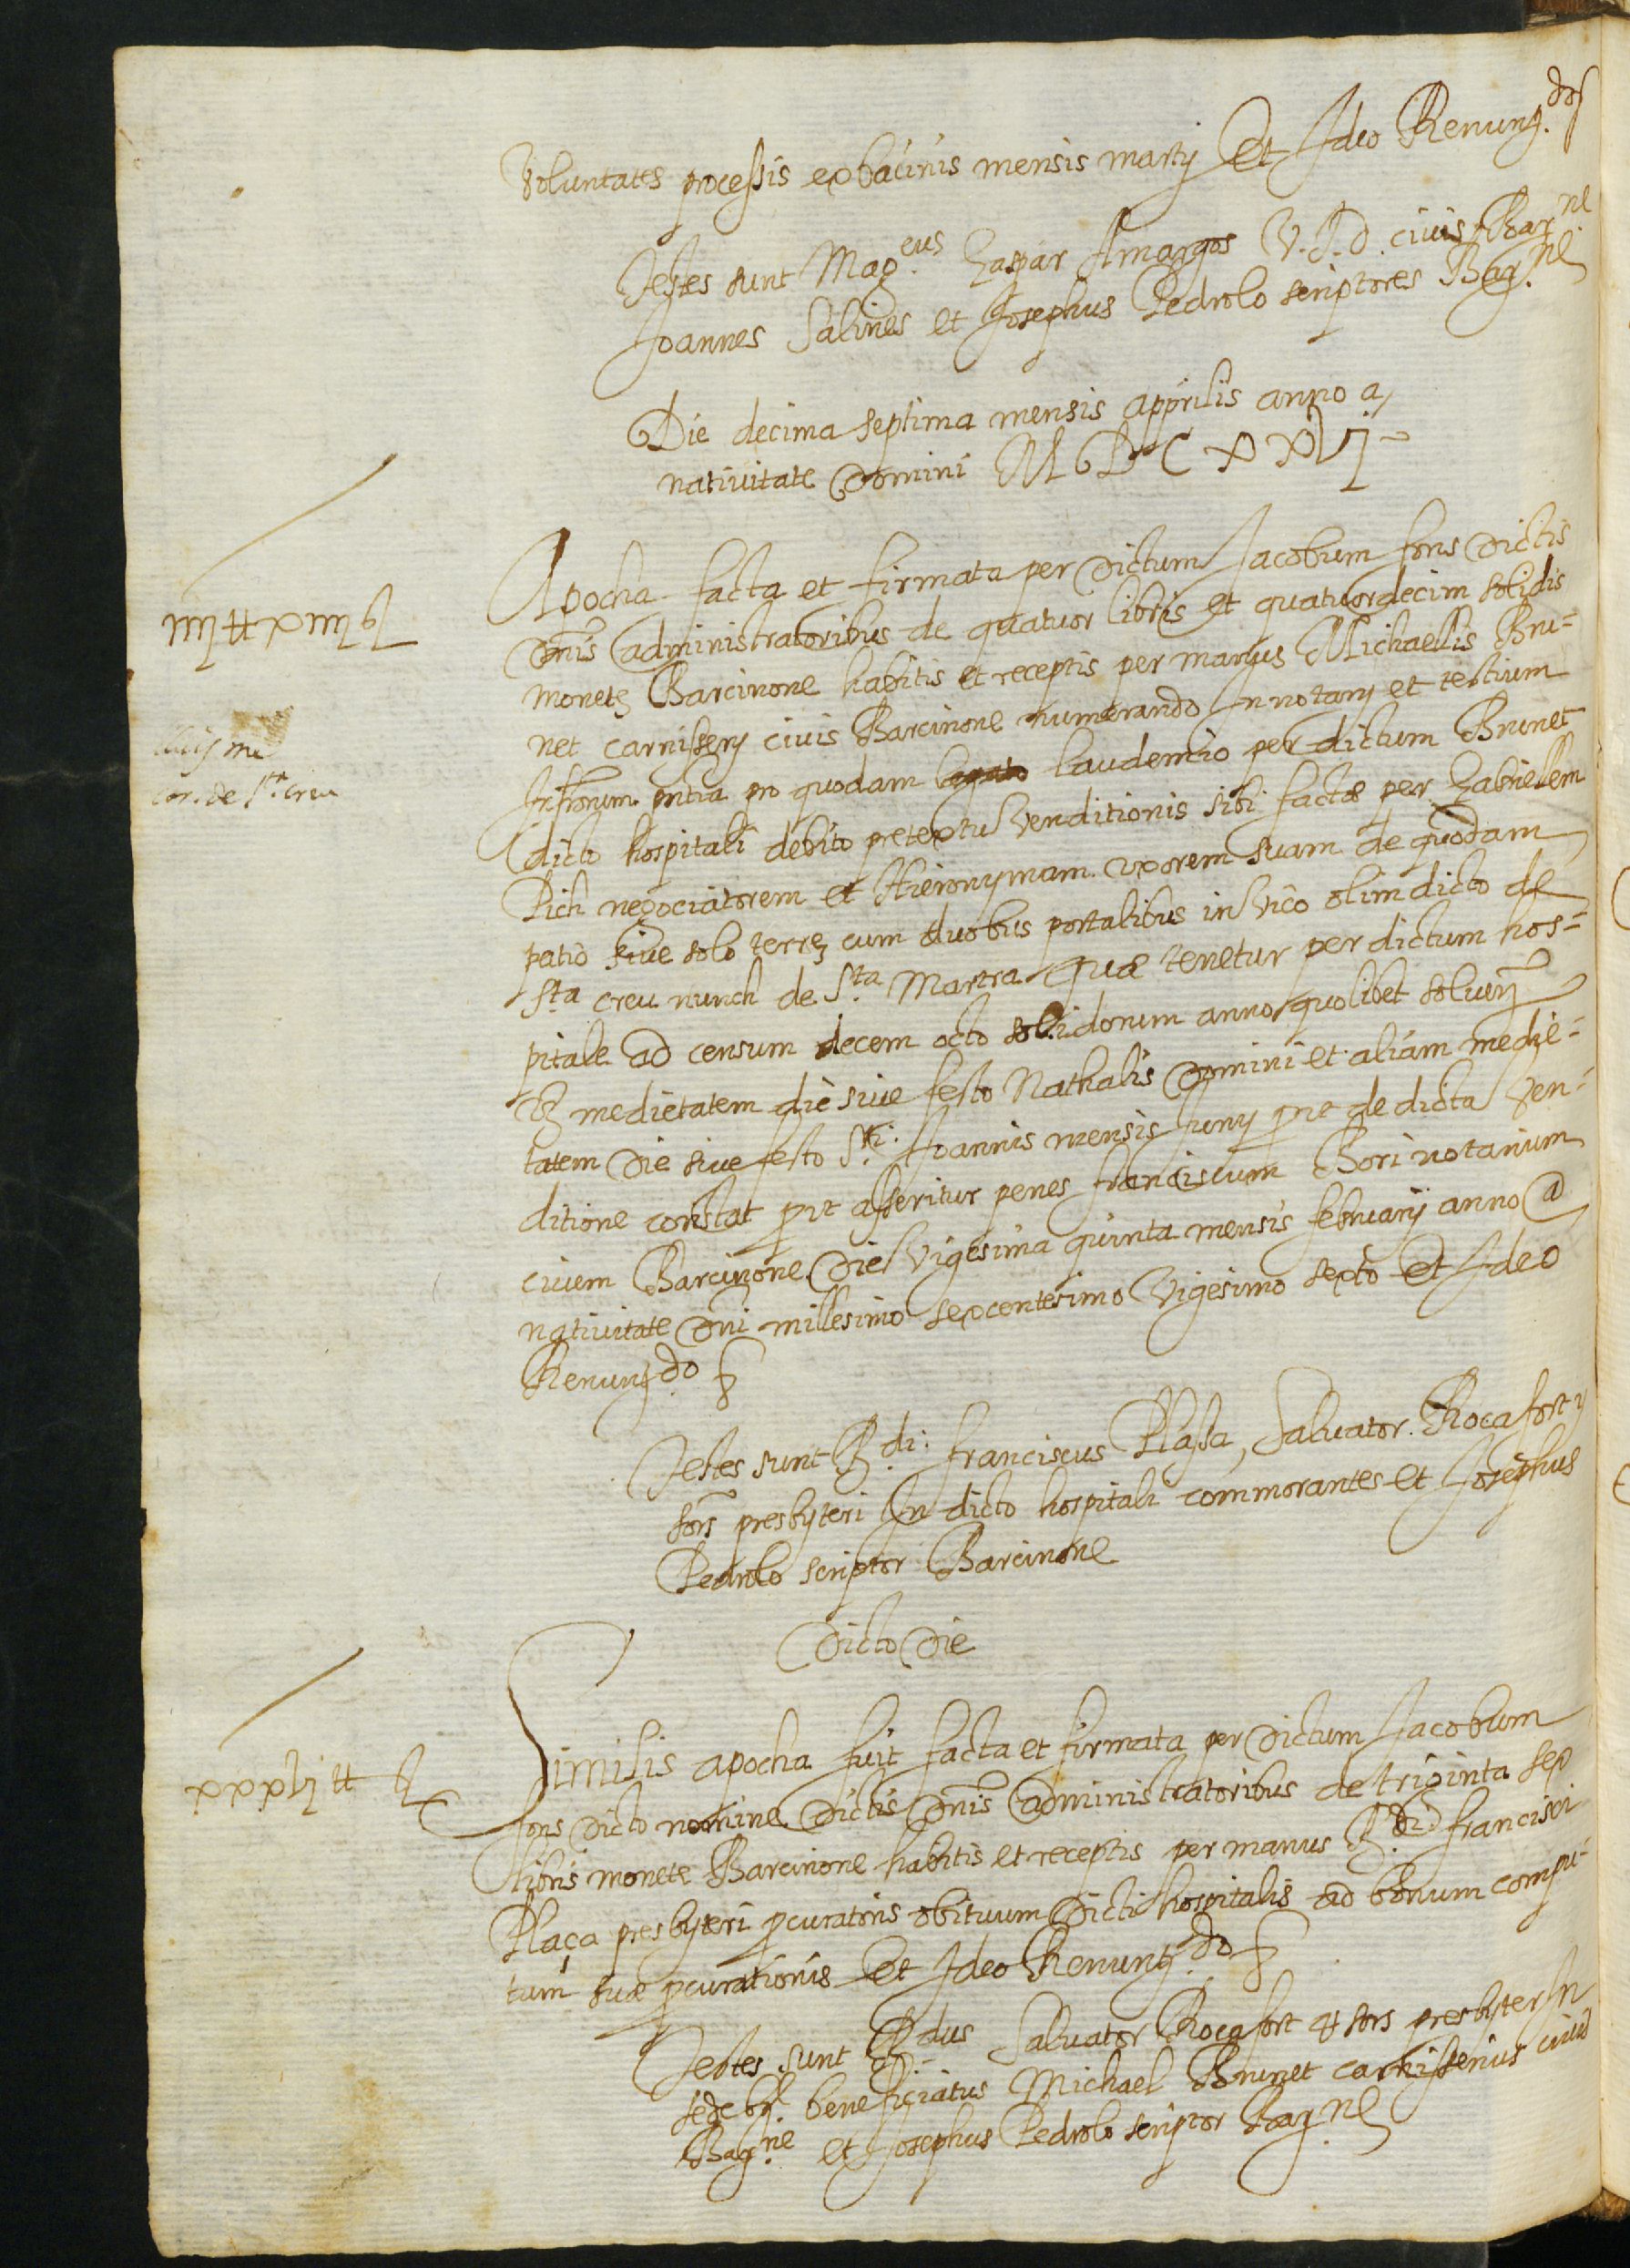 Voluntates processis mensis martÿ Et Ideo Renung.do
Testes sunt Mag.cus Gaspar Amargos V.J.D. civis Bar.ne
Joannes Salines et Josephus Pedrolo scriptores Bar.ne
Die decima septima mensis apprilis anno a
nativitate Domini MDCXXVJ
Apocha facta et firmata per dictum Jacobum fons dictis
Dnis administratoribus de quatuor libris et quatuordecim solidis
monetę Barcinone habitis et receptis per manus Michaellis Bru=
net carnisserÿ civis Barcinone numerando In notarÿ et testium
Infrorum pntia pro quodam laudemio per dictum Brunet
dicto hospitali debito pretextu Venditionis sibi factæ per Gabrielem
Pich negociatorem et Hieronymam uxorem suam de quodam
patio sive solo terrę cum duobus portalibus in Vico olim dicto de
Sta creu nunch de Sta Martra quæ tenetur per dictum hos=
pitale ad censum decem octo solidorum anno quolibet soluen
medietatem die sive festo Nathalis Domini et aliam medie=
tatem Die sive festo Sti. Joannis mensis Junÿ prt de dicta Ven=
ditione constat prt asseritur penes franciscum Bori notarium
civem Barcinone Die Vigesima quinta mensis februarÿ anno a
nativitate Dni millesimo sexcentesimo Vigesimo sexto et Ideo
Renung.do &
Testes sunt R.di. franciscus Plassa, Salvator Rocafort y
fors presbyteri In dicto hospitali commorantes et Josephus
Pedrolo scriptor Barcinone
Dicto Die
Similis apocha fuit facta et firmata per dictum Jacobum
fons dicto nomine dictis Dnis administratoribus de triginta sex
libris monete Barcinone habitis et receptis per manus R.di francisci
Plaça presbyteri pcuratoris obituum dicti hospitalis ad bonum compu=
tum suæ pcurationis Et Ideo Renung.do &
Testes sunt R.dus Salvator Rocafort & fors presbyter In
sede beneficiatus Michael Brunet carnisserius civis
Bar.ne et Josephus Pedrolo scriptor Bar.ne
cor. de Sta creu